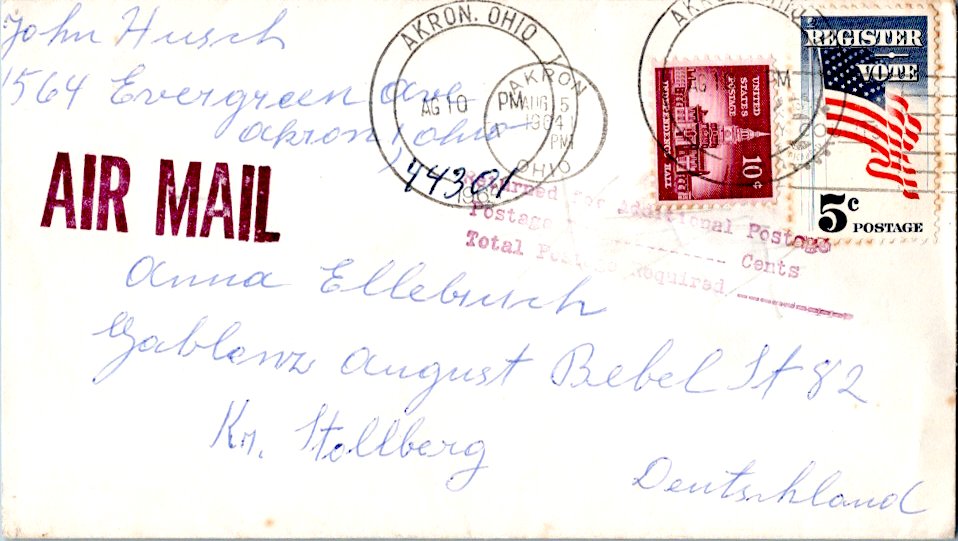 John Husch
1564 Evergreen Ave
Akron, Ohio
44301
AIR MAIL
AKRON. OHIO
AG 10 PM
AKRON
AUG 5
1964
PM
OHIO
UNITED STATES POSTAGE
INDEPENDENCE HALL
10¢
REGISTER
VOTE
5c
POSTAGE
Returned for Additional Postage
Postage Cents
Total Postage Required
Anna Ellebusch
Gablenz August Bebel St 82
Kr. Stollberg
Deutschland